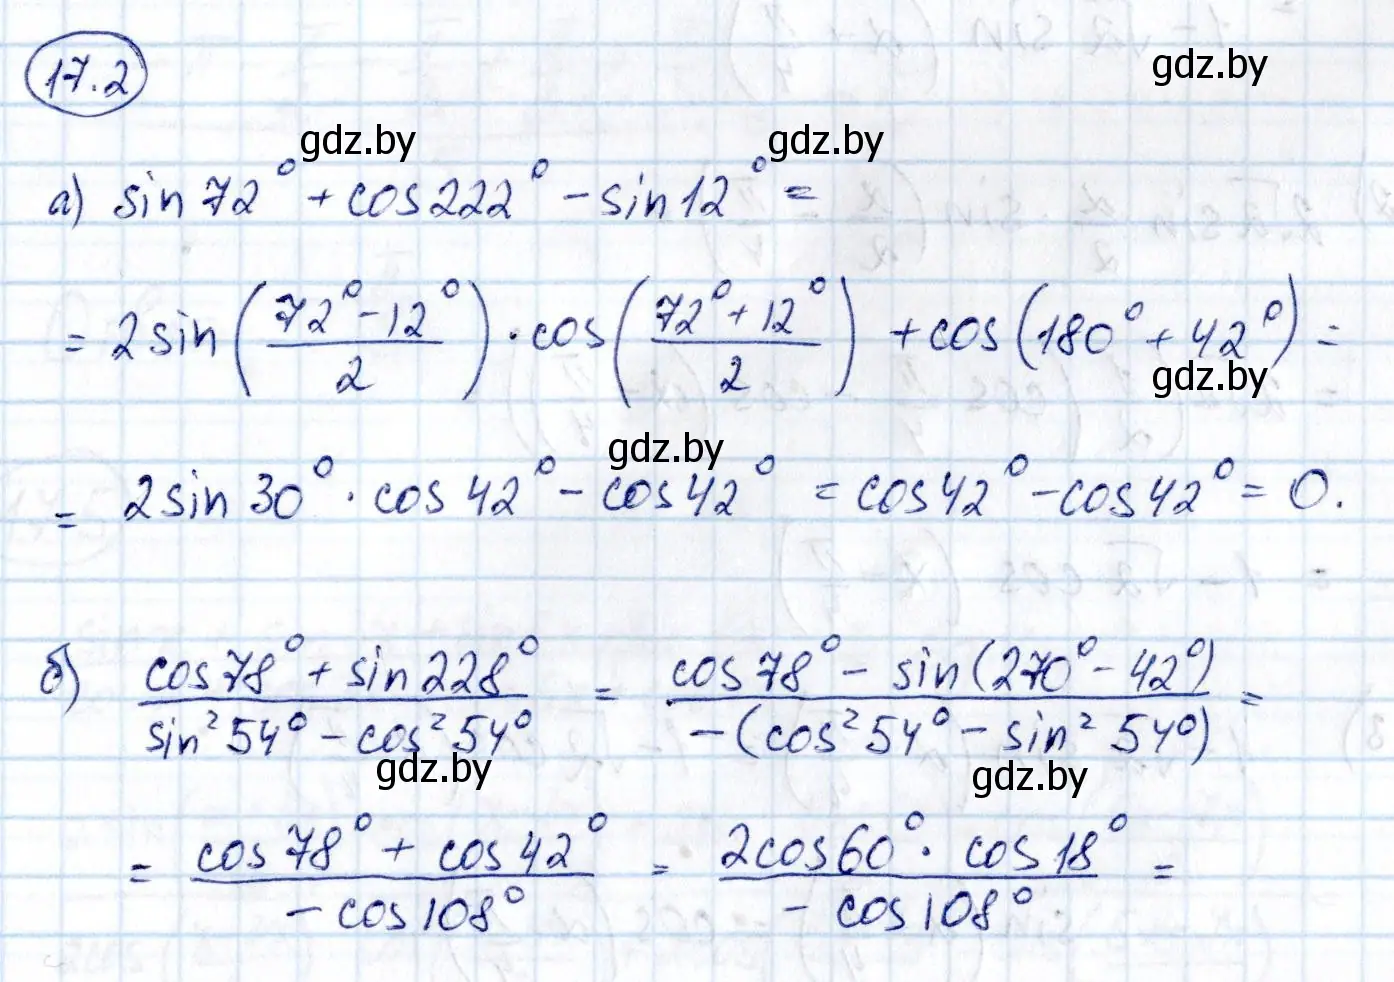 17.2
gdz.by
gdz.by gdz.by
а) sin 72° + cos 222° − sin 12° =
= 2 sin((72° − 12°)/2) · cos((72° + 12°)/2) + cos(180° + 42°) =
gdz.by
gdz.by
= 2 sin 30° · cos 42° − cos 42° = cos 42° − cos 42° = 0.
б) (cos 78° + sin 228°)/(sin² 54° − cos² 54°) = (cos 78° − sin(270° − 42°))/(−(cos² 54° − sin² 54°)) =
gdz.by gdz.by
= (cos 78° + cos 42°)/(− cos 108°) = (2 cos 60° · cos 18°)/(− cos 108°) =